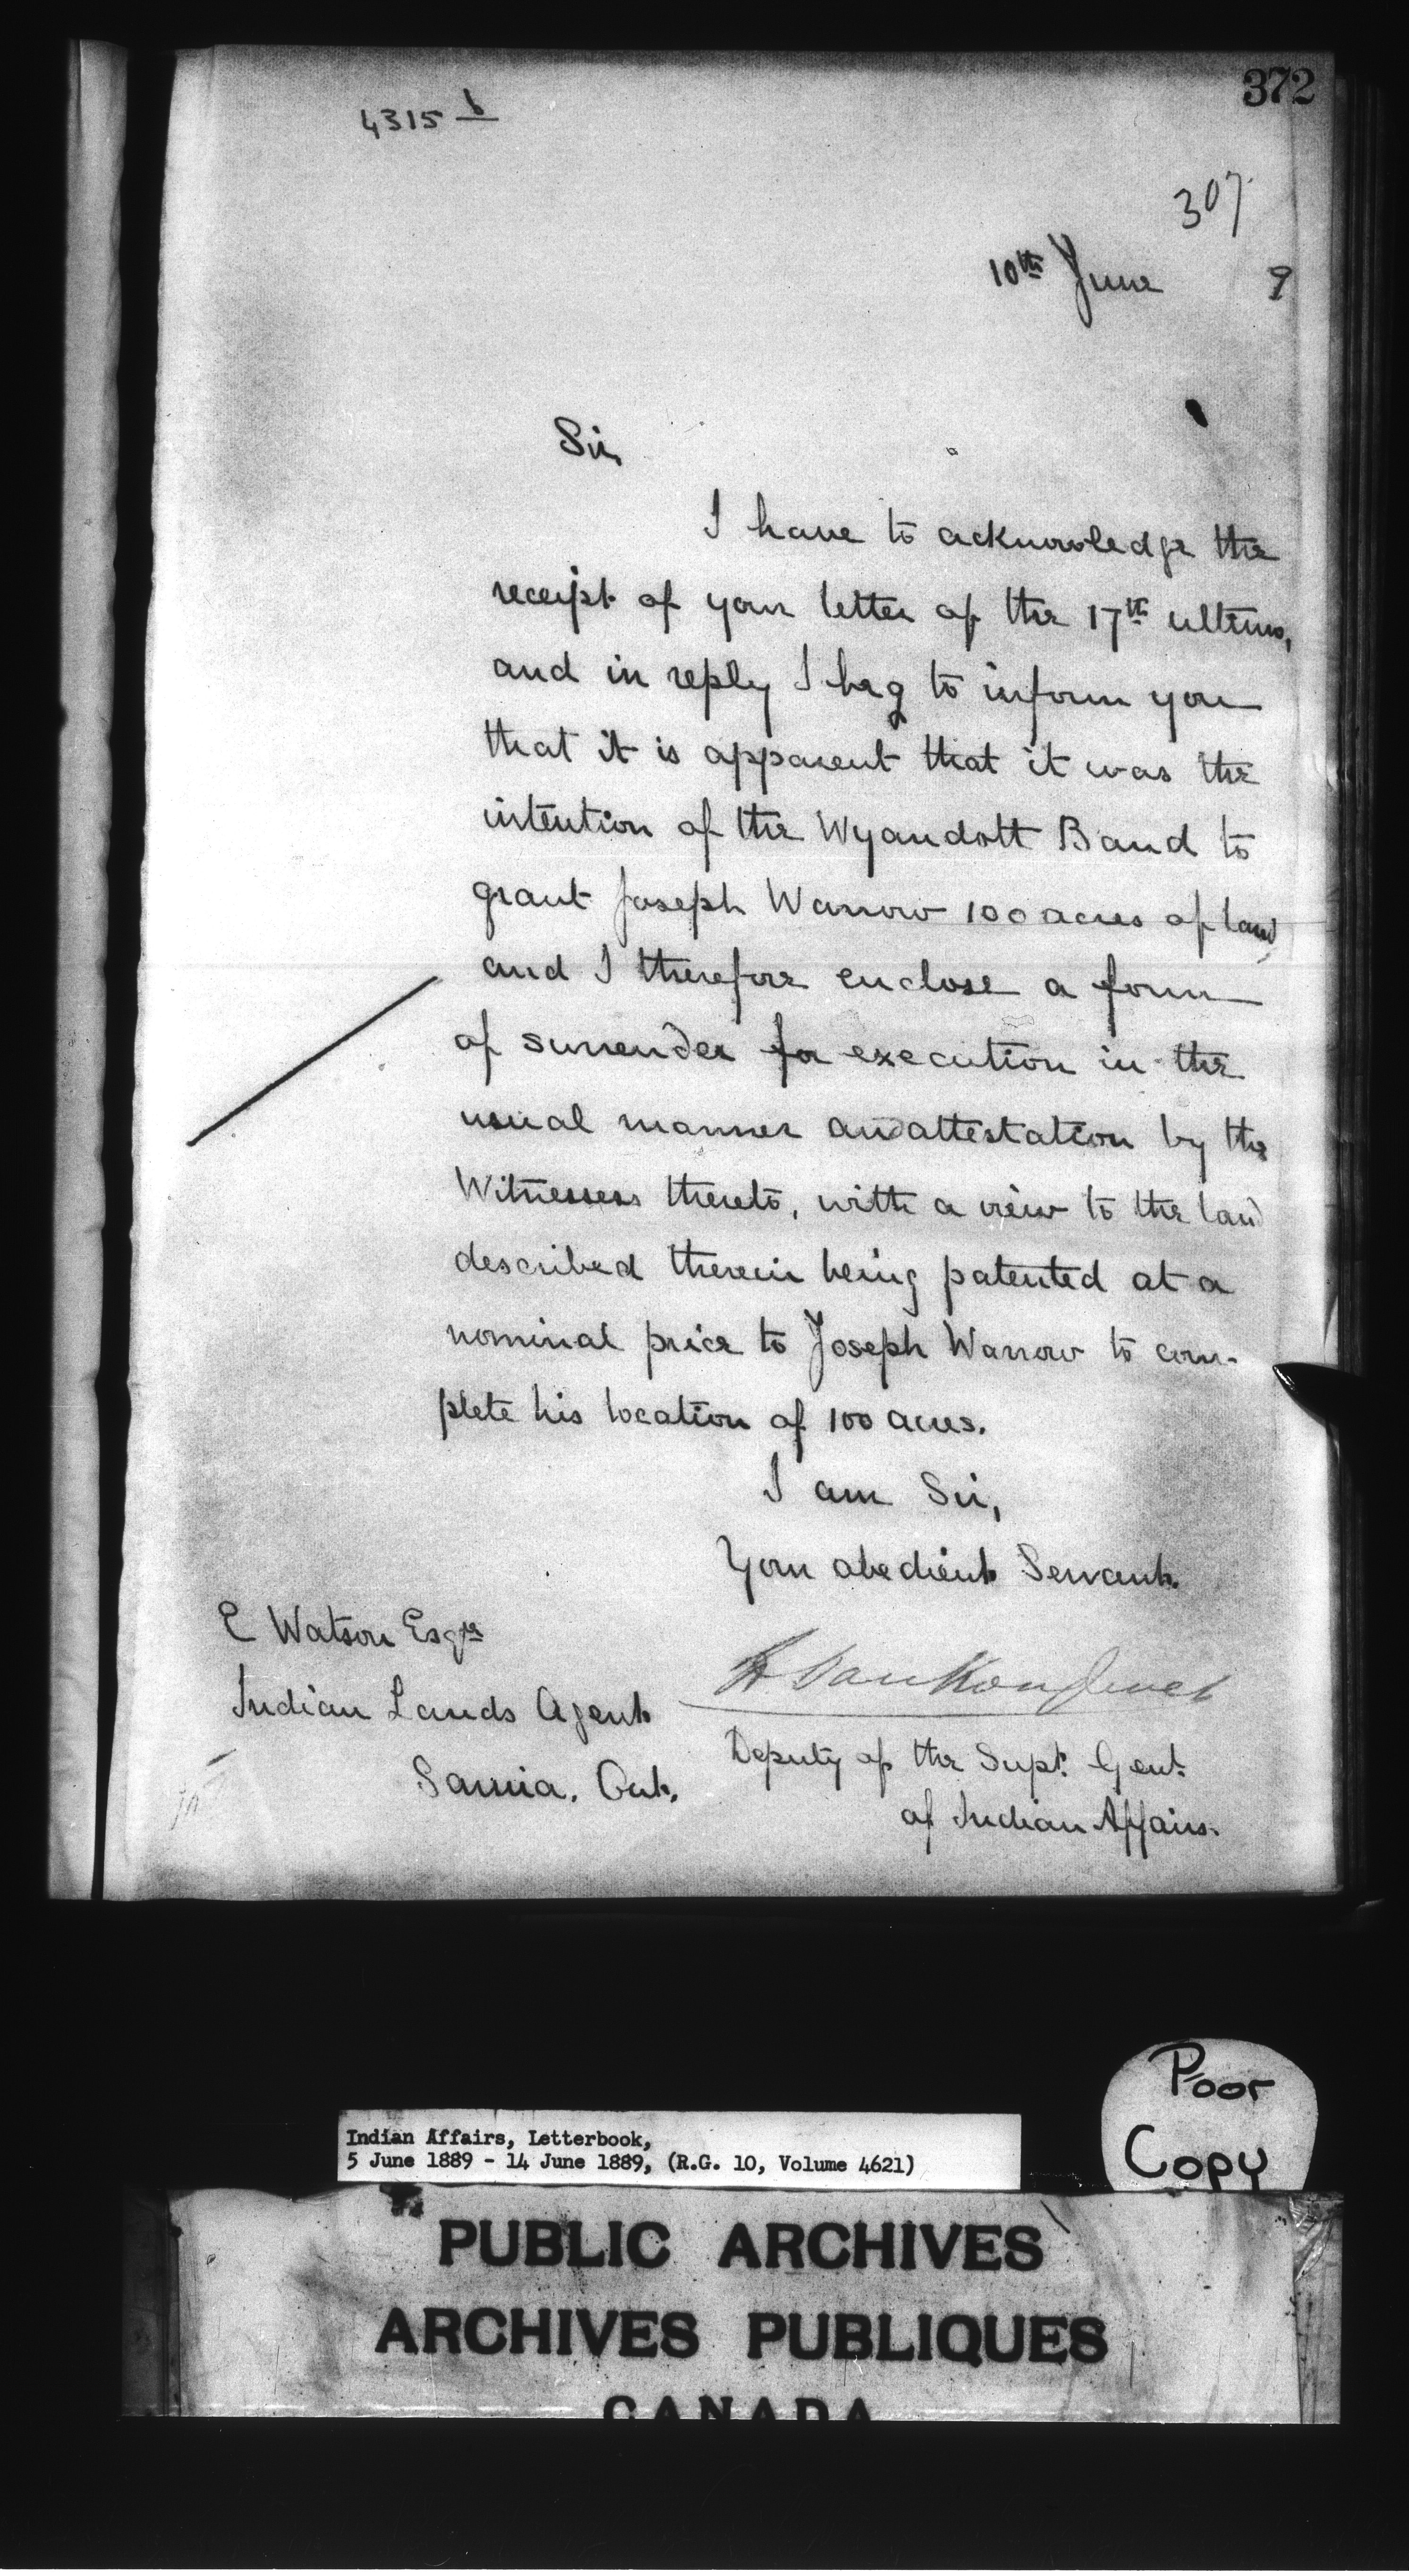 372
4315 b
307.
10th June 9
Sir,
I have to acknowledge the
receipt of your letter of the 17th ultimo,
and in reply I beg to inform you
that it is apparent that it was the
intention of the Wyandott Band to
grant Joseph Warrow 100 acres of land,
and I therefore enclose a form
of surrender for execution in the
usual manner and attestation by the
Witnesses thereto, with a view to the land
described therein being patented at a
nominal price to Joseph Warrow to com-
plete his location of 100 acres.
I am Sir,
Your obedient Servant.
E Watson Esqre
Indian Lands Agent
Sarnia. Ont.
L VanKoughnet
Deputy of the Supt. Genl.
of Indian Affairs.
Poor
Copy
Indian Affairs, Letterbook,
5 June 1889 - 14 June 1889, (R.G. 10, Volume 4621)
PUBLIC ARCHIVES
ARCHIVES PUBLIQUES
CANADA